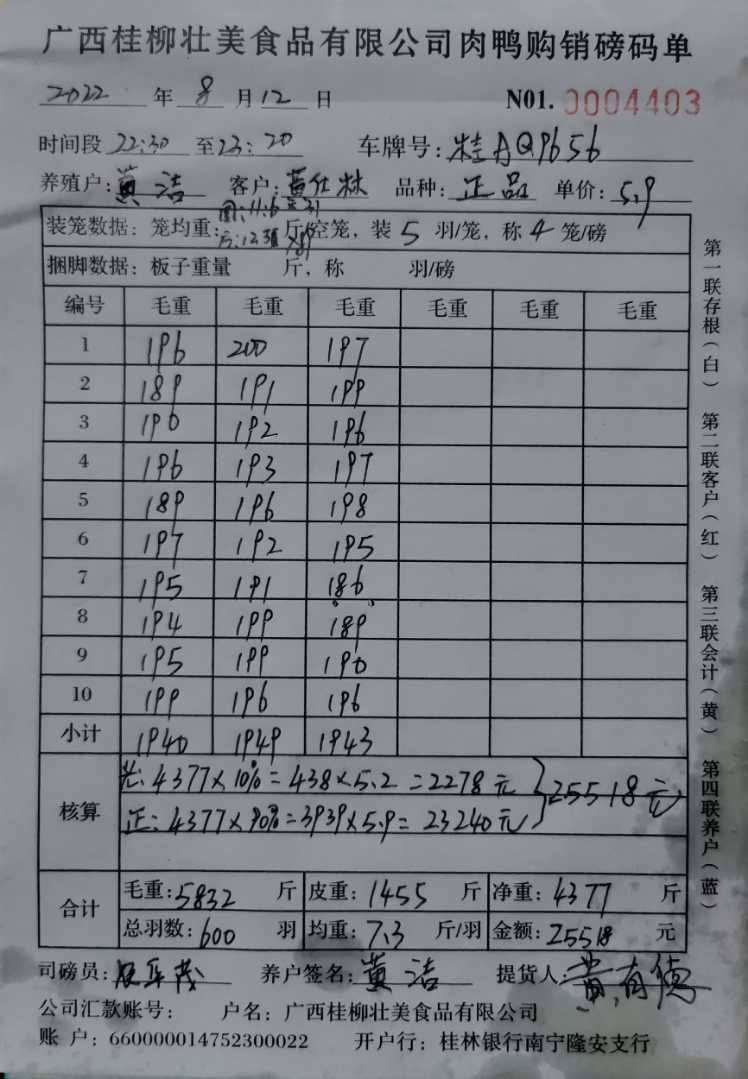 广西桂柳壮美食品有限公司肉鸭购销磅码单
2022 年 8 月 12 日 N01. 0004403
时间段 22:30 至 23:20 车牌号: 桂AQ9656
养殖户: 黄洁 客户: 黄仕林 品种: 正品 单价: 5.9
装笼数据: 笼均重: 斤/空笼, 装 5 羽/笼, 称 4 笼/磅
捆脚数据: 板子重量 斤, 称 羽/磅
编号 毛重 毛重 毛重 毛重 毛重 毛重
1 196 200 197
2 189 191 199
3 190 192 196
4 196 193 197
5 189 196 198
6 197 192 195
7 195 191 186
8 194 199 189
9 195 199 190
10 199 196 196
小计 1940 1949 1943
核算
4377×10%=438×5.2=2278元 25518元
正: 4377×90%=3939×5.9=23240元
合计
毛重: 5832 斤 皮重: 1455 斤 净重: 4377 斤
总羽数: 600 羽 均重: 7.3 斤/羽 金额: 25518 元
司磅员: 养户签名: 黄洁 提货人: 黄有德
公司汇款账号: 户名: 广西桂柳壮美食品有限公司
账 户: 660000014752300022 开户行: 桂林银行南宁隆安支行
第一联存根(白) 第二联客户(红) 第三联会计(黄) 第四联养户(蓝)